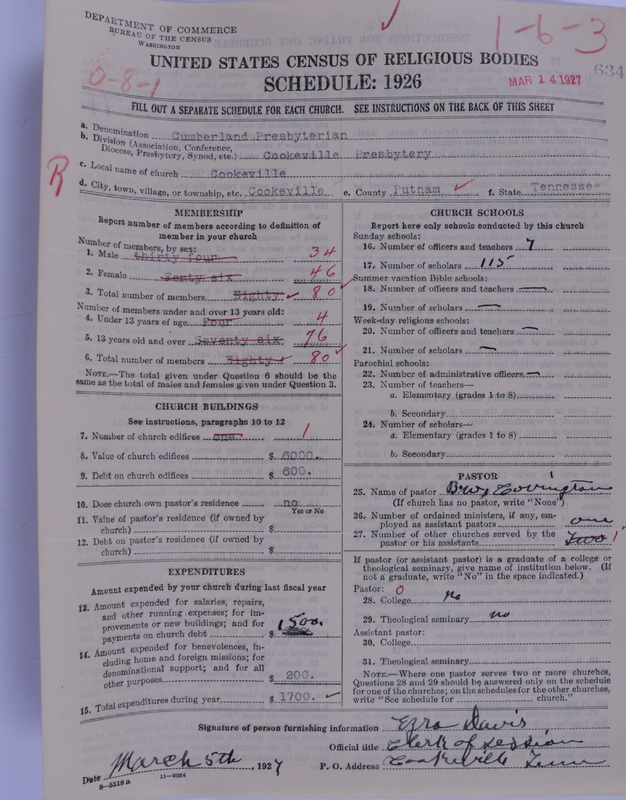 DEPARTMENT OF COMMERCE
BUREAU OF THE CENSUS
WASHINGTON
1-6-3
634
UNITED STATES CENSUS OF RELIGIOUS BODIES
0-8-1
SCHEDULE: 1926
MAR 14 1927
FILL OUT A SEPARATE SCHEDULE FOR EACH CHURCH. SEE INSTRUCTIONS ON THE BACK OF THIS SHEET
a. Denomination Cumberland Presbyterian
b. Division (Association, Conference,
Diocese, Presbytery, Synod, etc.) Cookeville Presbytery
R
c. Local name of church Cookeville
d. City, town, village, or township, etc. Cookeville e. County Putnam f. State Tennessee
MEMBERSHIP
Report number of members according to definition of
member in your church
Number of members, by sex:
1. Male thirty four 34
2. Female Forty six 46
3. Total number of members Eighty 80
Number of members under and over 13 years old:
4. Under 13 years of age Four 4
5. 13 years old and over Seventy six 76
6. Total number of members Eighty 80
NOTE.—The total given under Question 6 should be the
same as the total of males and females given under Question 3.
CHURCH BUILDINGS
See instructions, paragraphs 10 to 12
7. Number of church edifices one 1
8. Value of church edifices $ 6000.
9. Debt on church edifices $ 600.
10. Does church own pastor's residence no
Yes or No
11. Value of pastor's residence (if owned by
church) $
12. Debt on pastor's residence (if owned by
church) $
EXPENDITURES
Amount expended by your church during last fiscal year
13. Amount expended for salaries, repairs,
and other running expenses; for im-
provements or new buildings; and for
payments on church debt $ 1500.
14. Amount expended for benevolences, in-
cluding home and foreign missions; for
denominational support; and for all
other purposes $ 200.
15. Total expenditures during year $ 1700.
CHURCH SCHOOLS
Report here only schools conducted by this church
Sunday schools:
16. Number of officers and teachers 7
17. Number of scholars 115
Summer vacation Bible schools:
18. Number of officers and teachers —
19. Number of scholars —
Week-day religious schools:
20. Number of officers and teachers —
21. Number of scholars —
Parochial schools:
22. Number of administrative officers —
23. Number of teachers—
a. Elementary (grades 1 to 8)
b. Secondary
24. Number of scholars—
a. Elementary (grades 1 to 8)
b. Secondary
PASTOR
25. Name of pastor Covington
(If church has no pastor, write "None")
26. Number of ordained ministers, if any, em-
ployed as assistant pastors one
27. Number of other churches served by the
pastor or his assistants Two 1
If pastor (or assistant pastor) is a graduate of a college or
theological seminary, give name of institution below. (If
not a graduate, write "No" in the space indicated.)
Pastor: 0
28. College No
29. Theological seminary No
Assistant pastor:
30. College
31. Theological seminary
NOTE.—Where one pastor serves two or more churches,
Questions 28 and 29 should be answered only on the schedule
for one of the churches; on the schedules for the other churches,
write "See schedule for church."
Signature of person furnishing information Ezra Davis
Official title Clerk of Session
Date March 5th, 1927 P. O. Address Cookeville Tenn
8-5518a 11-9054